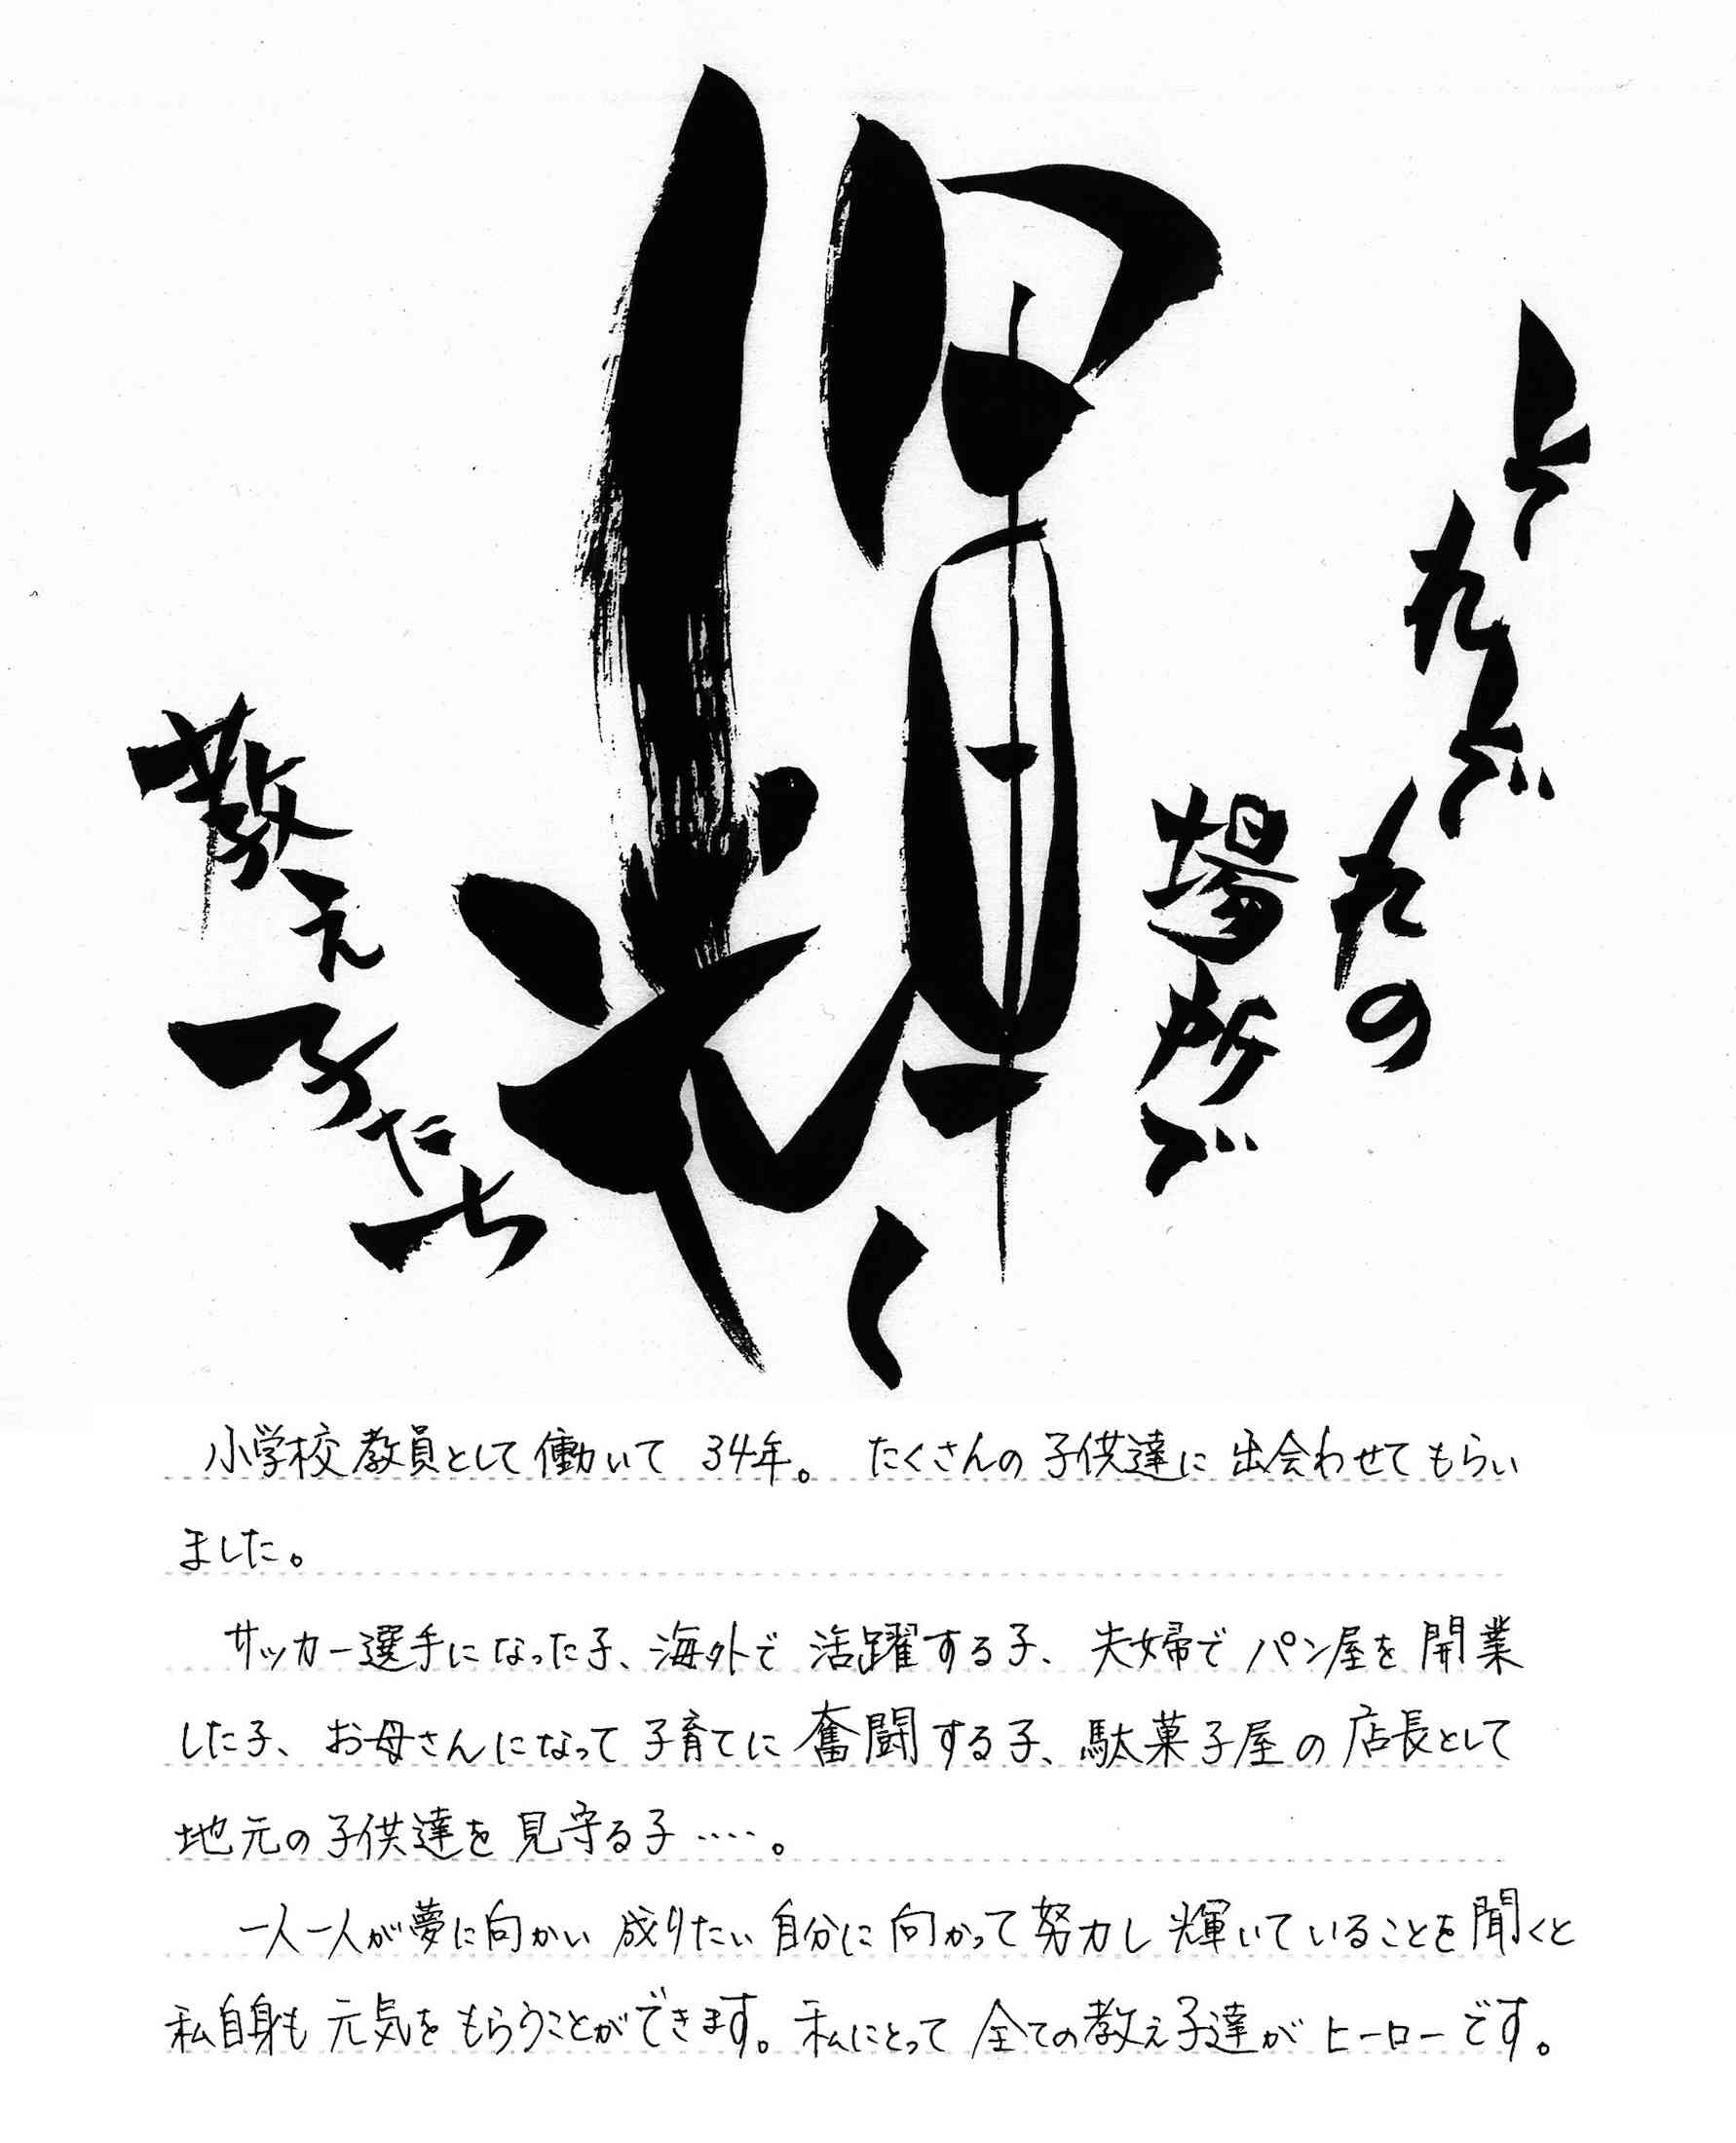 それぞれの
場所で
輝く
教え子たち
小学校教員として働いて34年。たくさんの子供達に出会わせてもらい
ました。
サッカー選手になった子、海外で活躍する子、夫婦でパン屋を開業
した子、お母さんになって子育てに奮闘する子、駄菓子屋の店長として
地元の子供達を見守る子‥‥。
一人一人が夢に向かい成りたい自分に向かって努力し輝いていることを聞くと
私自身も元気をもらうことができます。私にとって全ての教え子達がヒーローです。